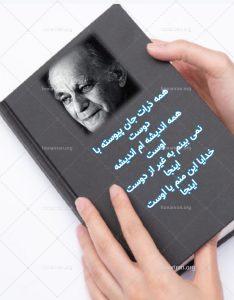 همه ذرات جان پیوسته با
دوست
همه اندیشه ام اندیشه
اوست
نمی بینم به غیر از دوست
اینجا
خدایا این منم یا اوست
اینجا
honariran.org